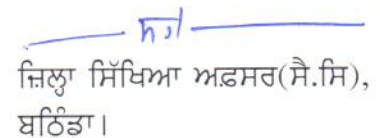 ਜ਼ਿਲ੍ਹਾ ਸਿੱਖਿਆ ਅਫ਼ਸਰ(ਸੈ.ਸਿ),
ਬਠਿੰਡਾ।